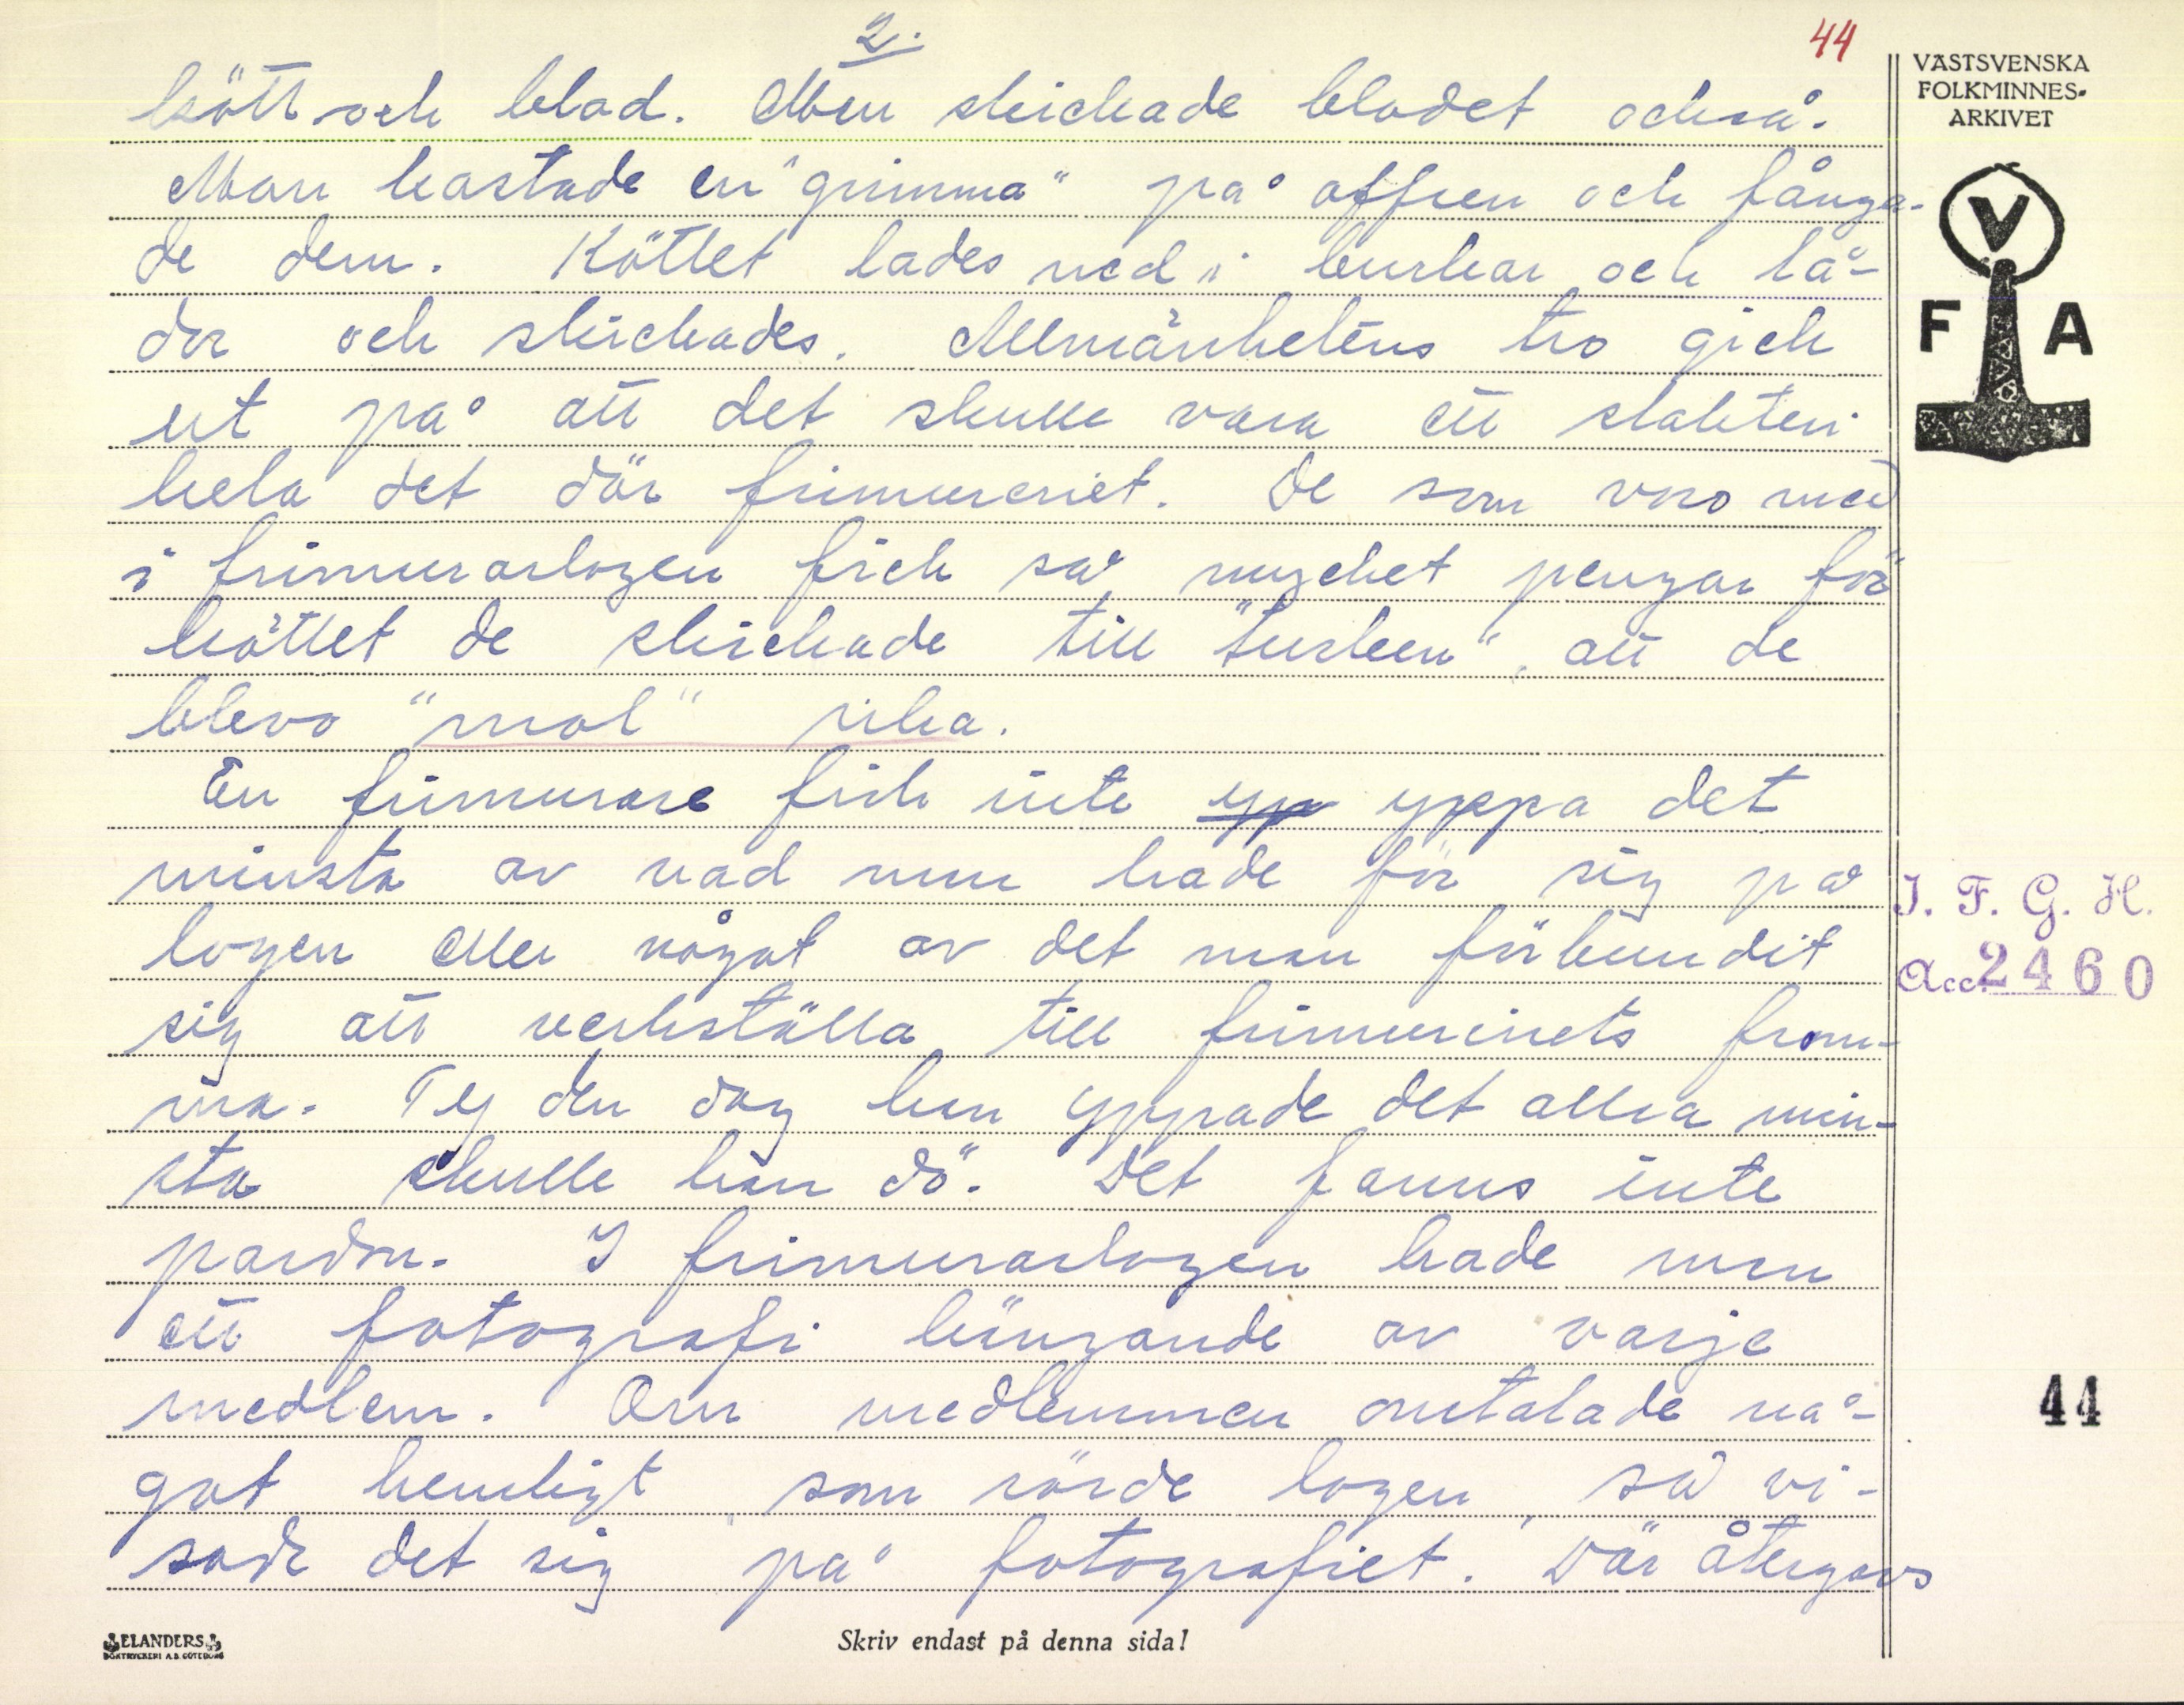 2.
44
VÄSTSVENSKA
FOLKMINNES-
ARKIVET
kött och blod. Man skickade blodet också.
Man kastade en "grimma" på offren och fånga-
de dem. Köttet lades ned i burkar och lå-
dor och skickades. Allmänhetens tro gick
ut på att det skulle vara ett slakteri
hela det där frimureriet. De som voro med
i frimurarlogen fick så mycket pengar för
köttet de skickade till "turken", att de
blevo "mol" rika.
En frimurare fick inte yp yppa det
minsta av vad man hade för sig på
logen eller något av det man förbundit
sig att verkställa till frimureriets from-
ma. Ty den dag han yppade det allra min-
sta skulle han dö. Det fanns inte
pardon. I frimurarlogen hade man
ett fotografi hängande av varje
medlem. Om medlemmen omtalade nå-
got hemligt som rörde logen så vi-
sade det sig på fotografiet. Där återgavs
V
F A
I. F. G. H.
Acc. 2460
44
ELANDERS
BOKTRYCKERI A.B. GÖTEBORG
Skriv endast på denna sida!